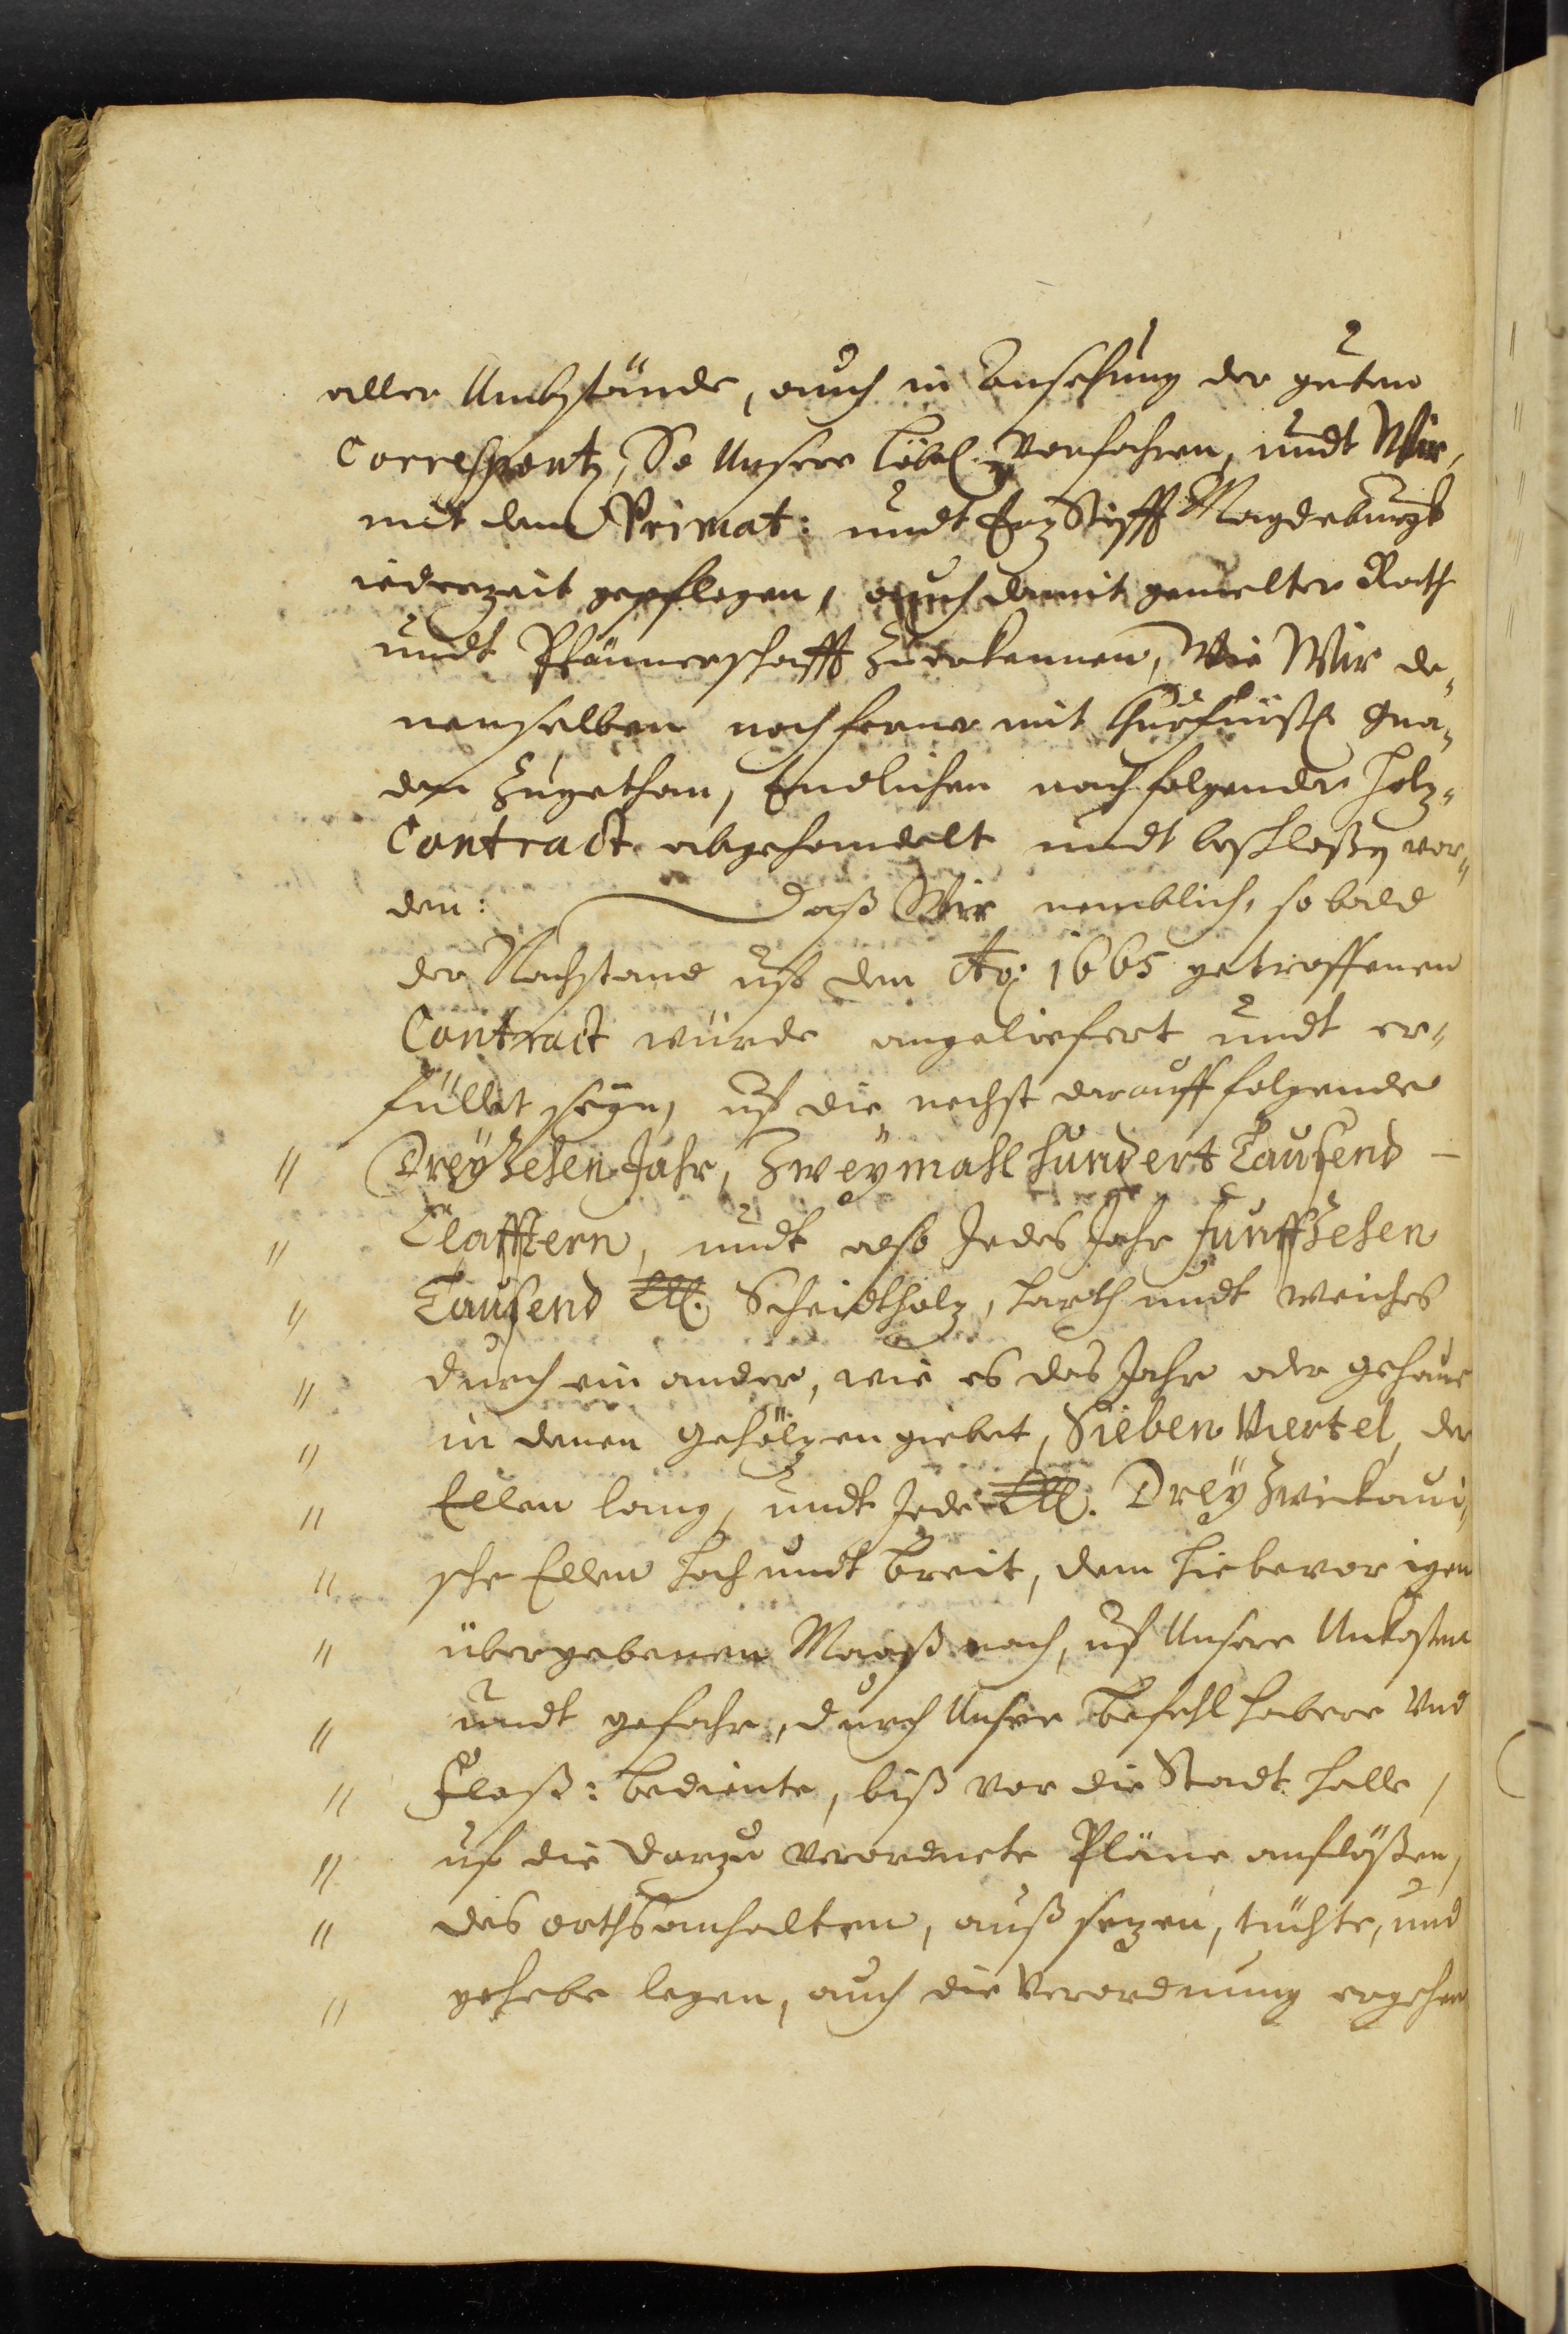 aller Umbstände, auch in Ansehung der guten
Correspontz, So Unsere Löbl. Vorfahren, undt Wir,
mit dem Primat: undt ErzStifft Magdeburgk
iederzeit gepflogen, auch damit gemelter Rath
undt Pfännerschafft zuerkennen, Wie Wir de„
nenselben noch ferner mit Churfürstl. Gna„
den zugethan, Endlichen nachfolgender Holz„
Contract abgehandelt undt beschloßen wor„
den: Daß Wir nemblich, so bald
der Nachstand uff den Ao: 1665 getroffenen
Contract würde angeliefert undt er„
füllet seyn, uf die nechst darauff folgende
„ Dreyzehen Jahr, Zweymahl hundert Tausend –
„ Clafftern, undt also Jedes Jahr funffzehen
„ Tausend Cll. Scheidtholz, harth undt weiches
„ durch ein ander, wie es das Jahr oder gehaue
„ in denen Gehölzen giebet, Sieben Viertel, der
„ Ellen lang, undt Jede Cll. Drey Zwickaui„
„ sche Ellen hoch undt breit, dem hiebevorigen
„ übergebenen Maaß nach, uf Unsere Unkosten
„ undt gefahr, durch Unsere Befehl habere Und
„ Floß: bediente, biß vor die Stadt Halle,
„ uf die darzu verordnete Pläne anflößen,
„ des orths anhalten, auß sezen, tüchte, und
„ gehebe legen, auch die Verordnung ergehen